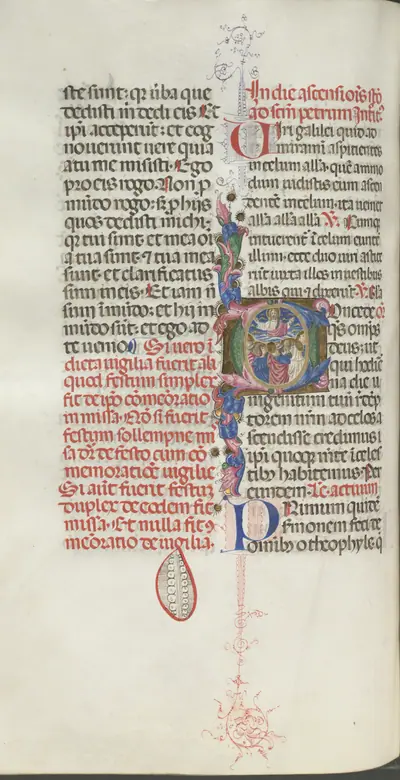 ste sunt: qr ūba que
dedisti m̄ dedi eis Et
ip̄i acceperūt: et cog
nouerunt uere quia
a te me misisti. Ego
pro eis rogo. Non p
mūdo rogo: s; p hijs
quos dedisti michi;
qr tui sunt: et mea oīa
tua sunt. ⁊ tua mea
sunt: et clarificatus
sum in eis. Et iam n̄
sum ī mūdo: et hij in
mūdo sūt: et ego ad
te uenio. Si uero ī
dicta uigilia fuerit ali
quod festum simplex
fit de ip̄o cōmemoratio
in missa. Nō si fuerit
festum sollempne mis
sa dr̄ de festo cum cō
memoratiōe uigilie
Si aūt fuerit festum
duplex de eodem fit
missa. Et nulla fit 9
memoratio de uigilia.
In die ascensiōis stō
ad scm̄ petrum Introit9
Uiri galilei quid ad
miramī aspicientes
in celum alla. quē ammo
dum uidistis eum ascen
dentē in celum. ita ueniet
alla alla alla. Ps. Cumq;
intuerent ī celum eunte
illum. ecce duo uiri astite
rūt iuxta illos in uestibus
albis qui ⁊ dixerūt. V. Gla
Concede
q̄s omps
deus: ut
qui hodie
na die u
nigenitum tuū redēp
torem nr̄m ad celos a
scendisse credimus:
ip̄i quoq; mēte ī celes
tib; habitemus. Per
eundem. Lc̄ actuum
Primum quidē
sermonem feci de
omnib; o theophyle q̄